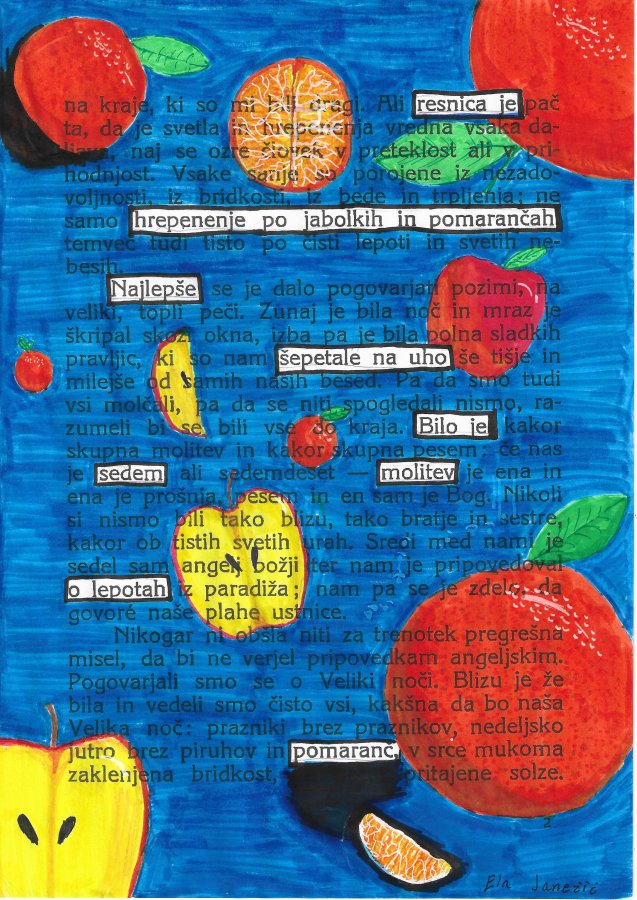 na kraje, ki so mi bili dragi. Ali resnica je pač
ta, da je svetla in hrepenenja vredna vsaka da-
ljava, naj se ozre človek v preteklost ali v pri-
hodnjost. Vsake sanje so porojene iz nezado-
voljnosti, iz bridkosti, iz bede in trpljenja; ne
samo hrepenenje po jabolkih in pomarančah
temveč tudi tisto po čisti lepoti in svetih ne-
besih.
Najlepše se je dalo pogovarjati pozimi, na
veliki, topli peči. Zunaj je bila noč in mraz je
škripal skozi okna, izba pa je bila polna sladkih
pravljic, ki so nam šepetale na uho še tišje in
milejše od samih naših besed. Pa da smo tudi
vsi molčali, pa da se niti spogledali nismo, ra-
zumeli bi se bili vse do kraja. Bilo je kakor
skupna molitev in kakor skupna pesem: če nas
je sedem ali sedemdeset — molitev je ena in
ena je prošnja, pesem in en sam je Bog. Nikoli
si nismo bili tako blizu, tako bratje in sestre,
kakor ob tistih svetih urah. Sredi med nami je
sedel sam angelj božji ter nam je pripovedoval
o lepotah iz paradiža; nam pa se je zdelo, da
govoré naše plahe ustnice.
Nikogar ni obšla niti za trenotek pregrešna
misel, da bi ne verjel pripovedkam angeljskim.
Pogovarjali smo se o Veliki noči. Blizu je že
bila in vedeli smo čisto vsi, kakšna da bo naša
Velika noč: prazniki brez praznikov, nedeljsko
jutro brez piruhov in pomaranč, v srce mukoma
zaklenjena bridkost, pritajene solze.
2
Ela Janežič